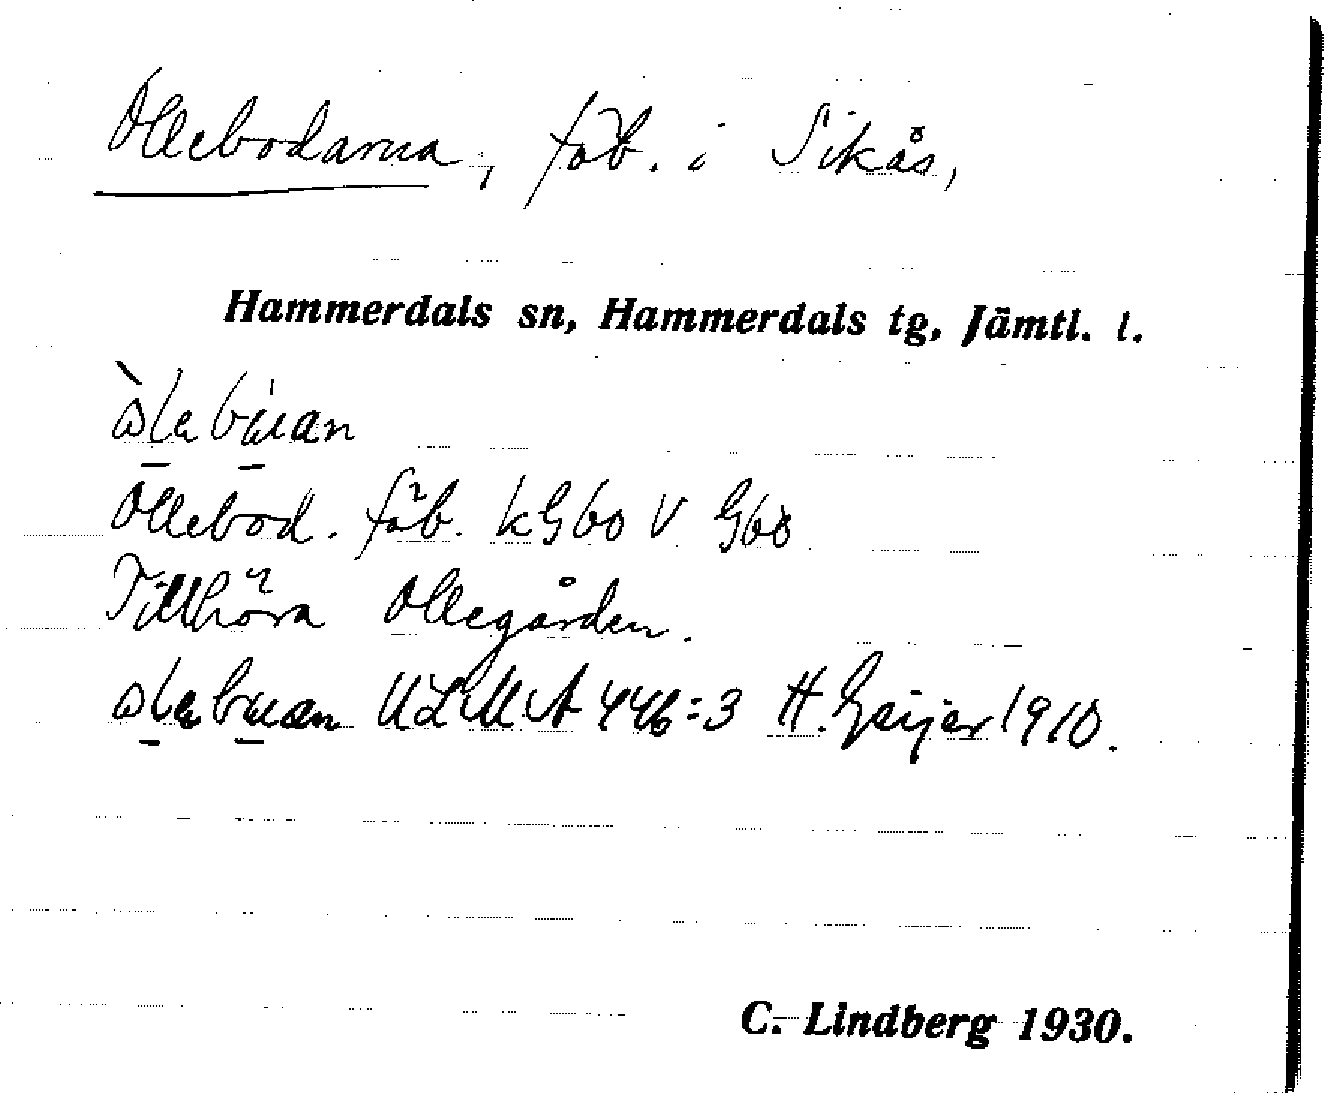 Ollebodarna, fäb. i Sikås,
Hammerdals sn, Hammerdals tg, Jämtl. l.
Ollebod. fäb. kG60 V G60
Tillhöra Ollegården.
ULMA 446:3 H. Geijer 1910.
C. Lindberg 1930.